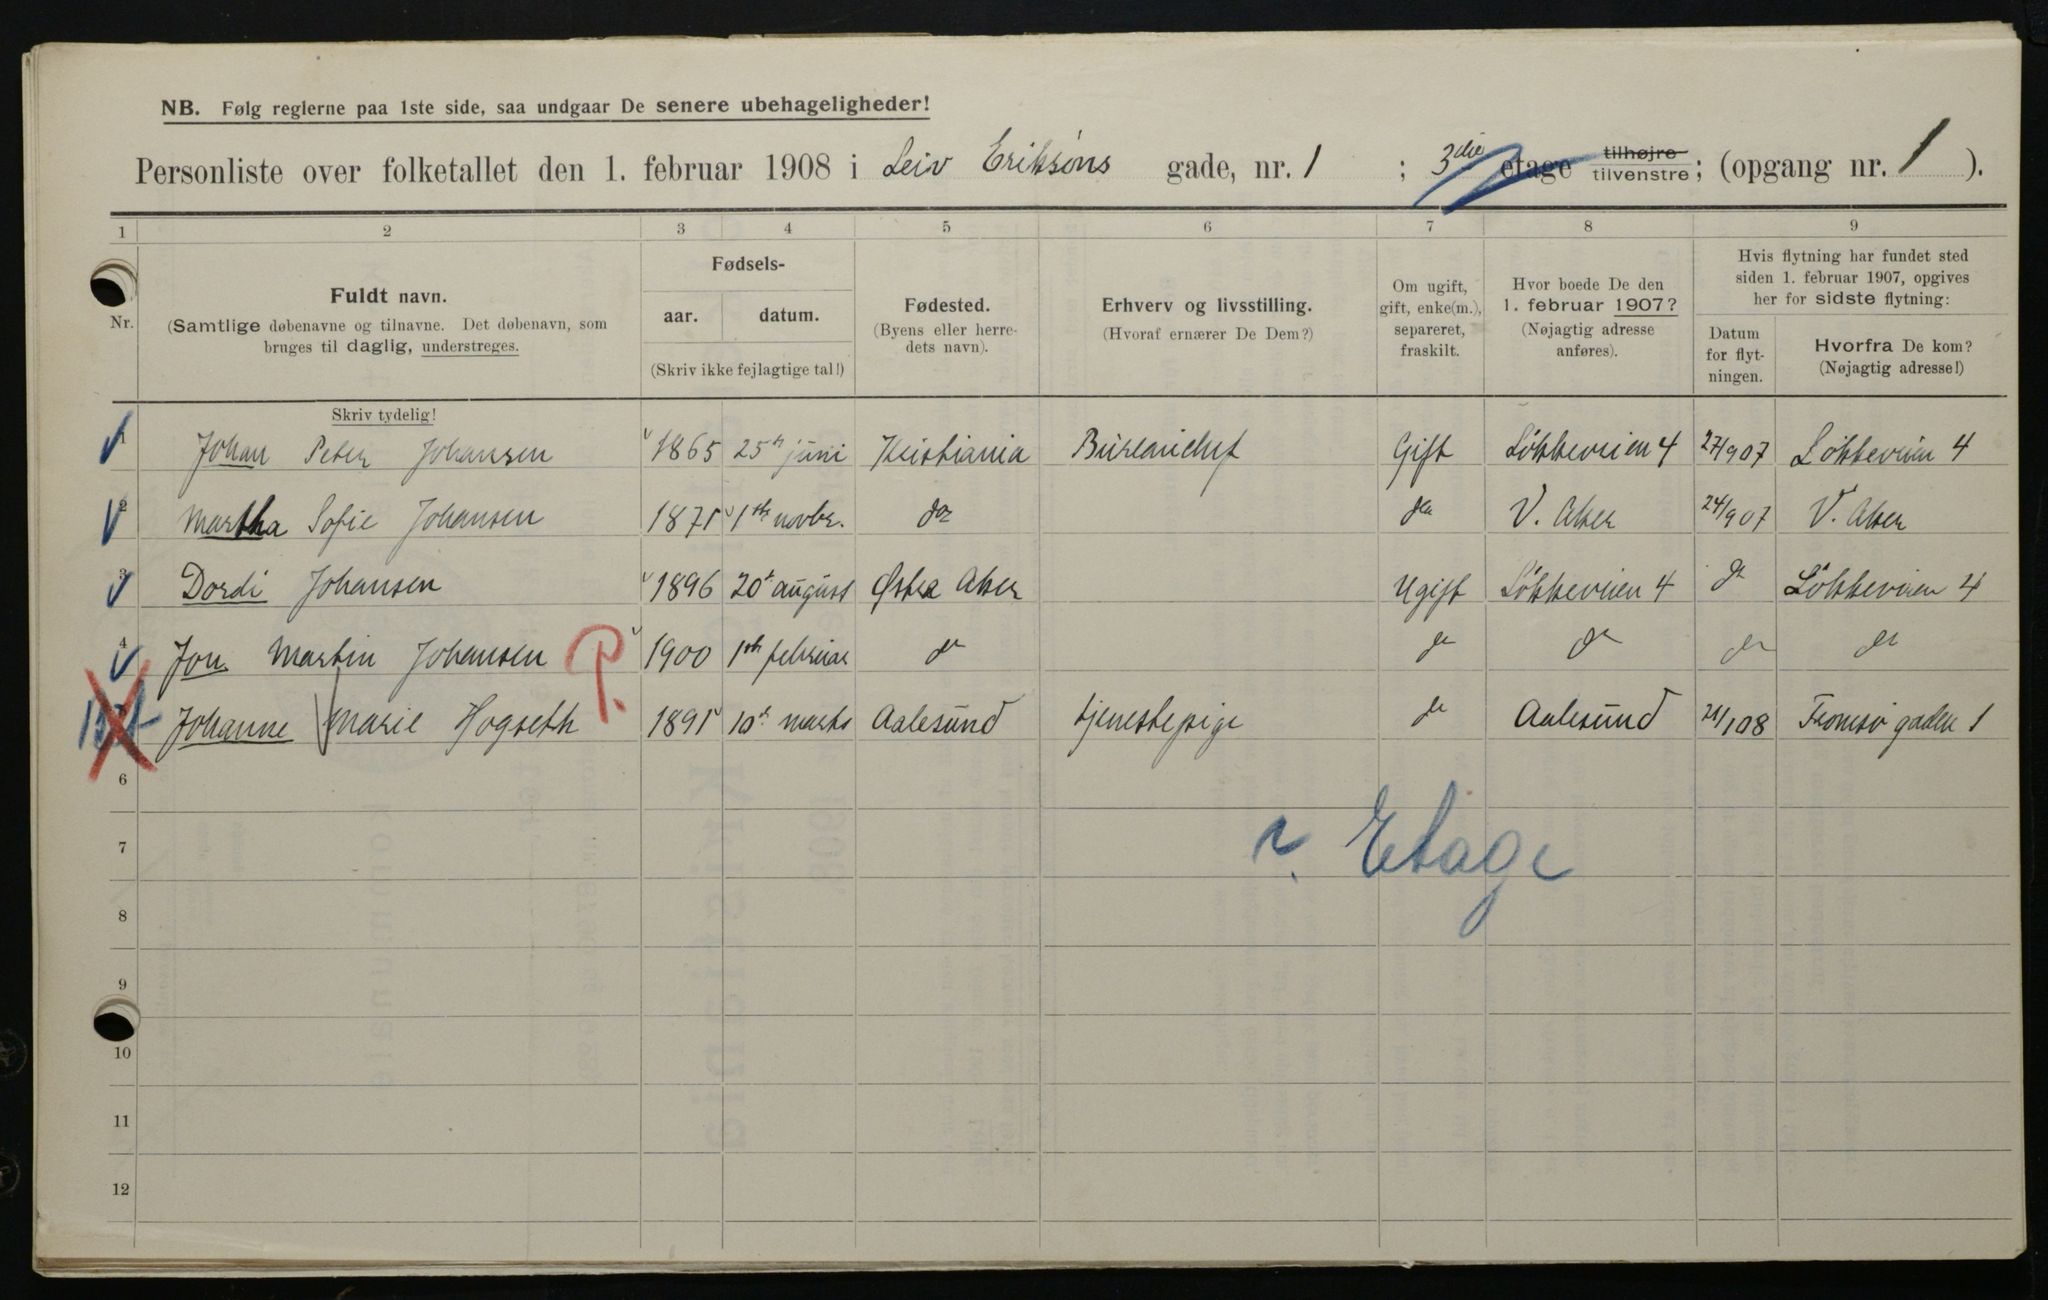 NB. Følg reglerne paa 1ste side, saa undgaar De senere ubehageligheder!
Personliste over folketallet den 1. februar 1908 i Leiv Eriksøns gade, nr. 1 ; 3die etage tilhøjre tilvenstre; (opgang nr. 1 ).
1 2 3 4 5 6 7 8 9
Nr.
Fuldt navn.
(Samtlige døbenavne og tilnavne. Det døbenavn, som
bruges til daglig, understreges.
Fødsels-
aar. datum.
(Skriv ikke fejlagtige tal!)
Fødested.
(Byens eller herre-
dets navn).
Erhverv og livsstilling.
(Hvoraf ernærer De Dem?)
Om ugift,
gift, enke(m.),
separeret,
fraskilt.
Hvor boede De den
1. februar 1907?
(Nøjagtig adresse
anføres).
Hvis flytning har fundet sted
siden 1. februar 1907, opgives
her for sidste flytning:
Datum
for flyt-
ningen.
Hvorfra De kom?
(Nøjagtig adresse!)
Skriv tydelig!
1 Johan Peter Johansen 1865 25de juni Kristiania Bureauchef Gift Løkkeveien 4 27/9 07 Løkkeveien 4
2 Martha Sofie Johansen 1871 1ste novbr. do do V. Aker 24/9 07 V. Aker
3 Dordi Johansen 1896 20de august Østre Aker Ugift Løkkeveien 4 do Løkkeveien 4
4 Jon Martin Johansen P. 1900 1ste februar do do do do do
Johanne Marie Hogseth 1891 10de marts Aalesund tjenestepige do Aalesund /1 08 Tromsø gaden 1
6
7
r. Etage
8
9
10
11
12